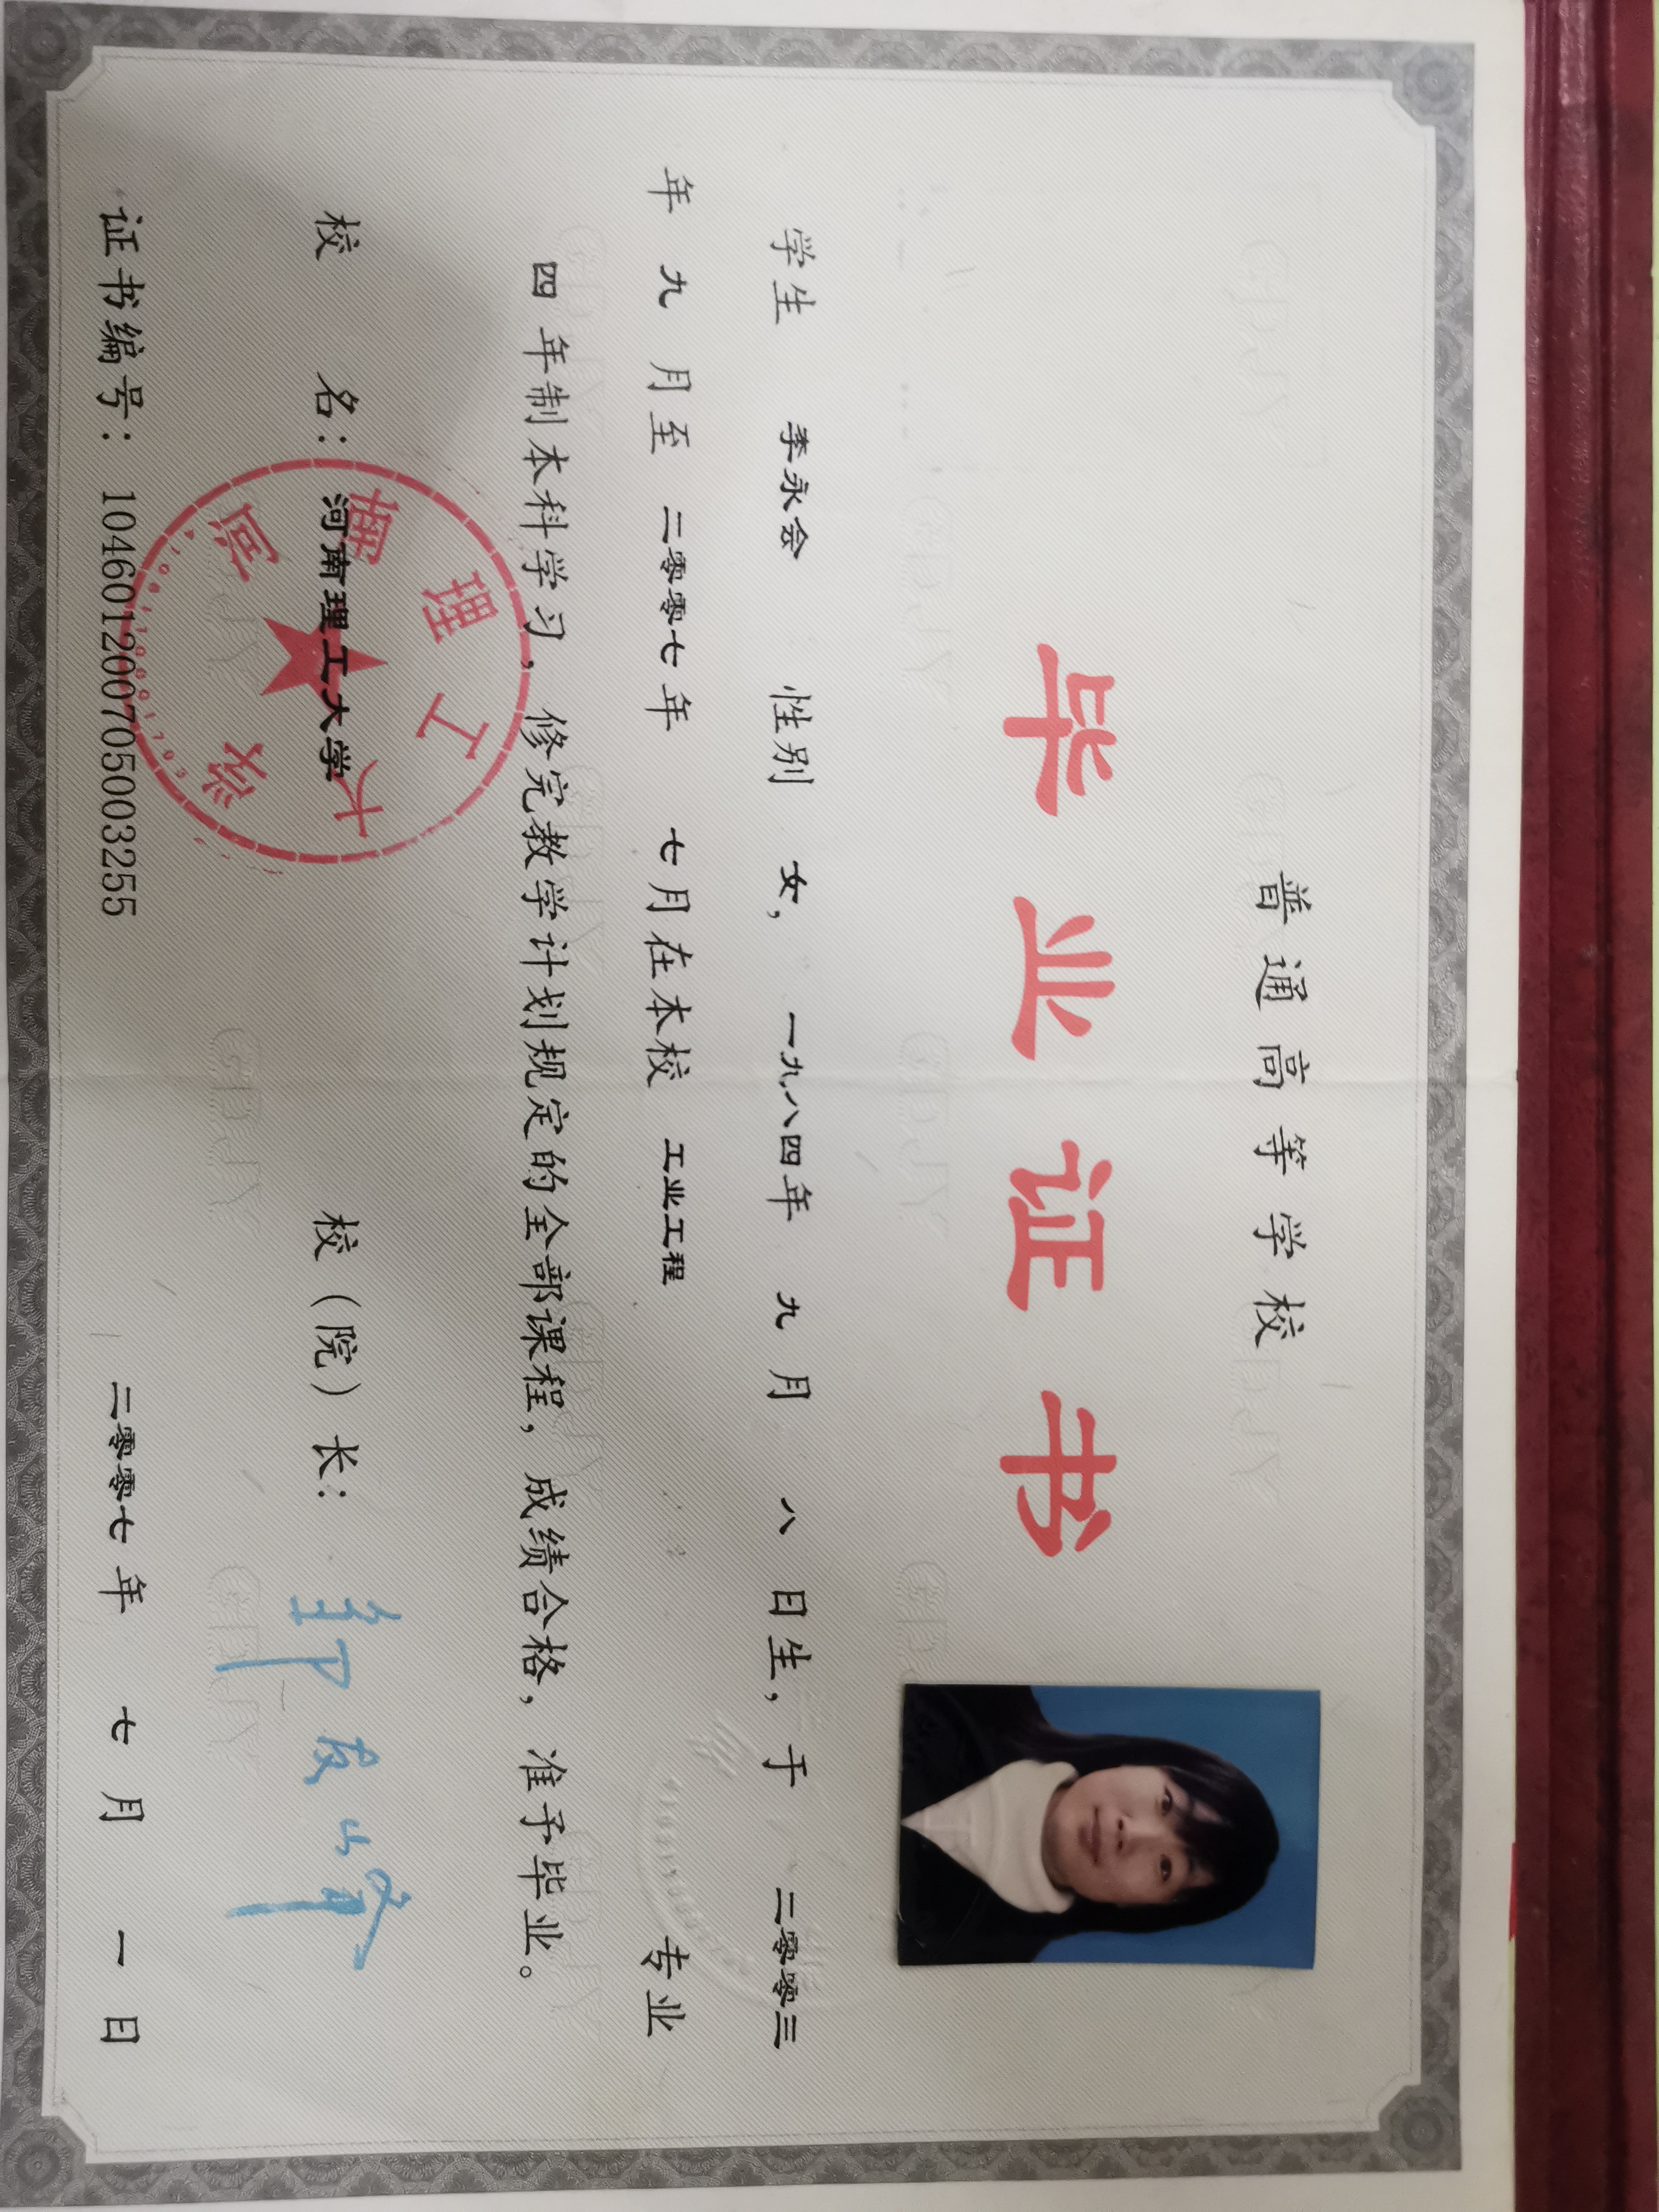 普通高等学校
毕业证书
学生 李永会 性别 女， 一九八四年 九 月 八 日生，于 二零零三
年 九 月至 二零零七年 七月在本校 工业工程 专业
四 年制本科学习，修完教学计划规定的全部课程，成绩合格，准予毕业。
校 名：河南理工大学 校（院）长：
河南理工大学
证书编号：104601200705003255 二零零七年 七 月 一 日